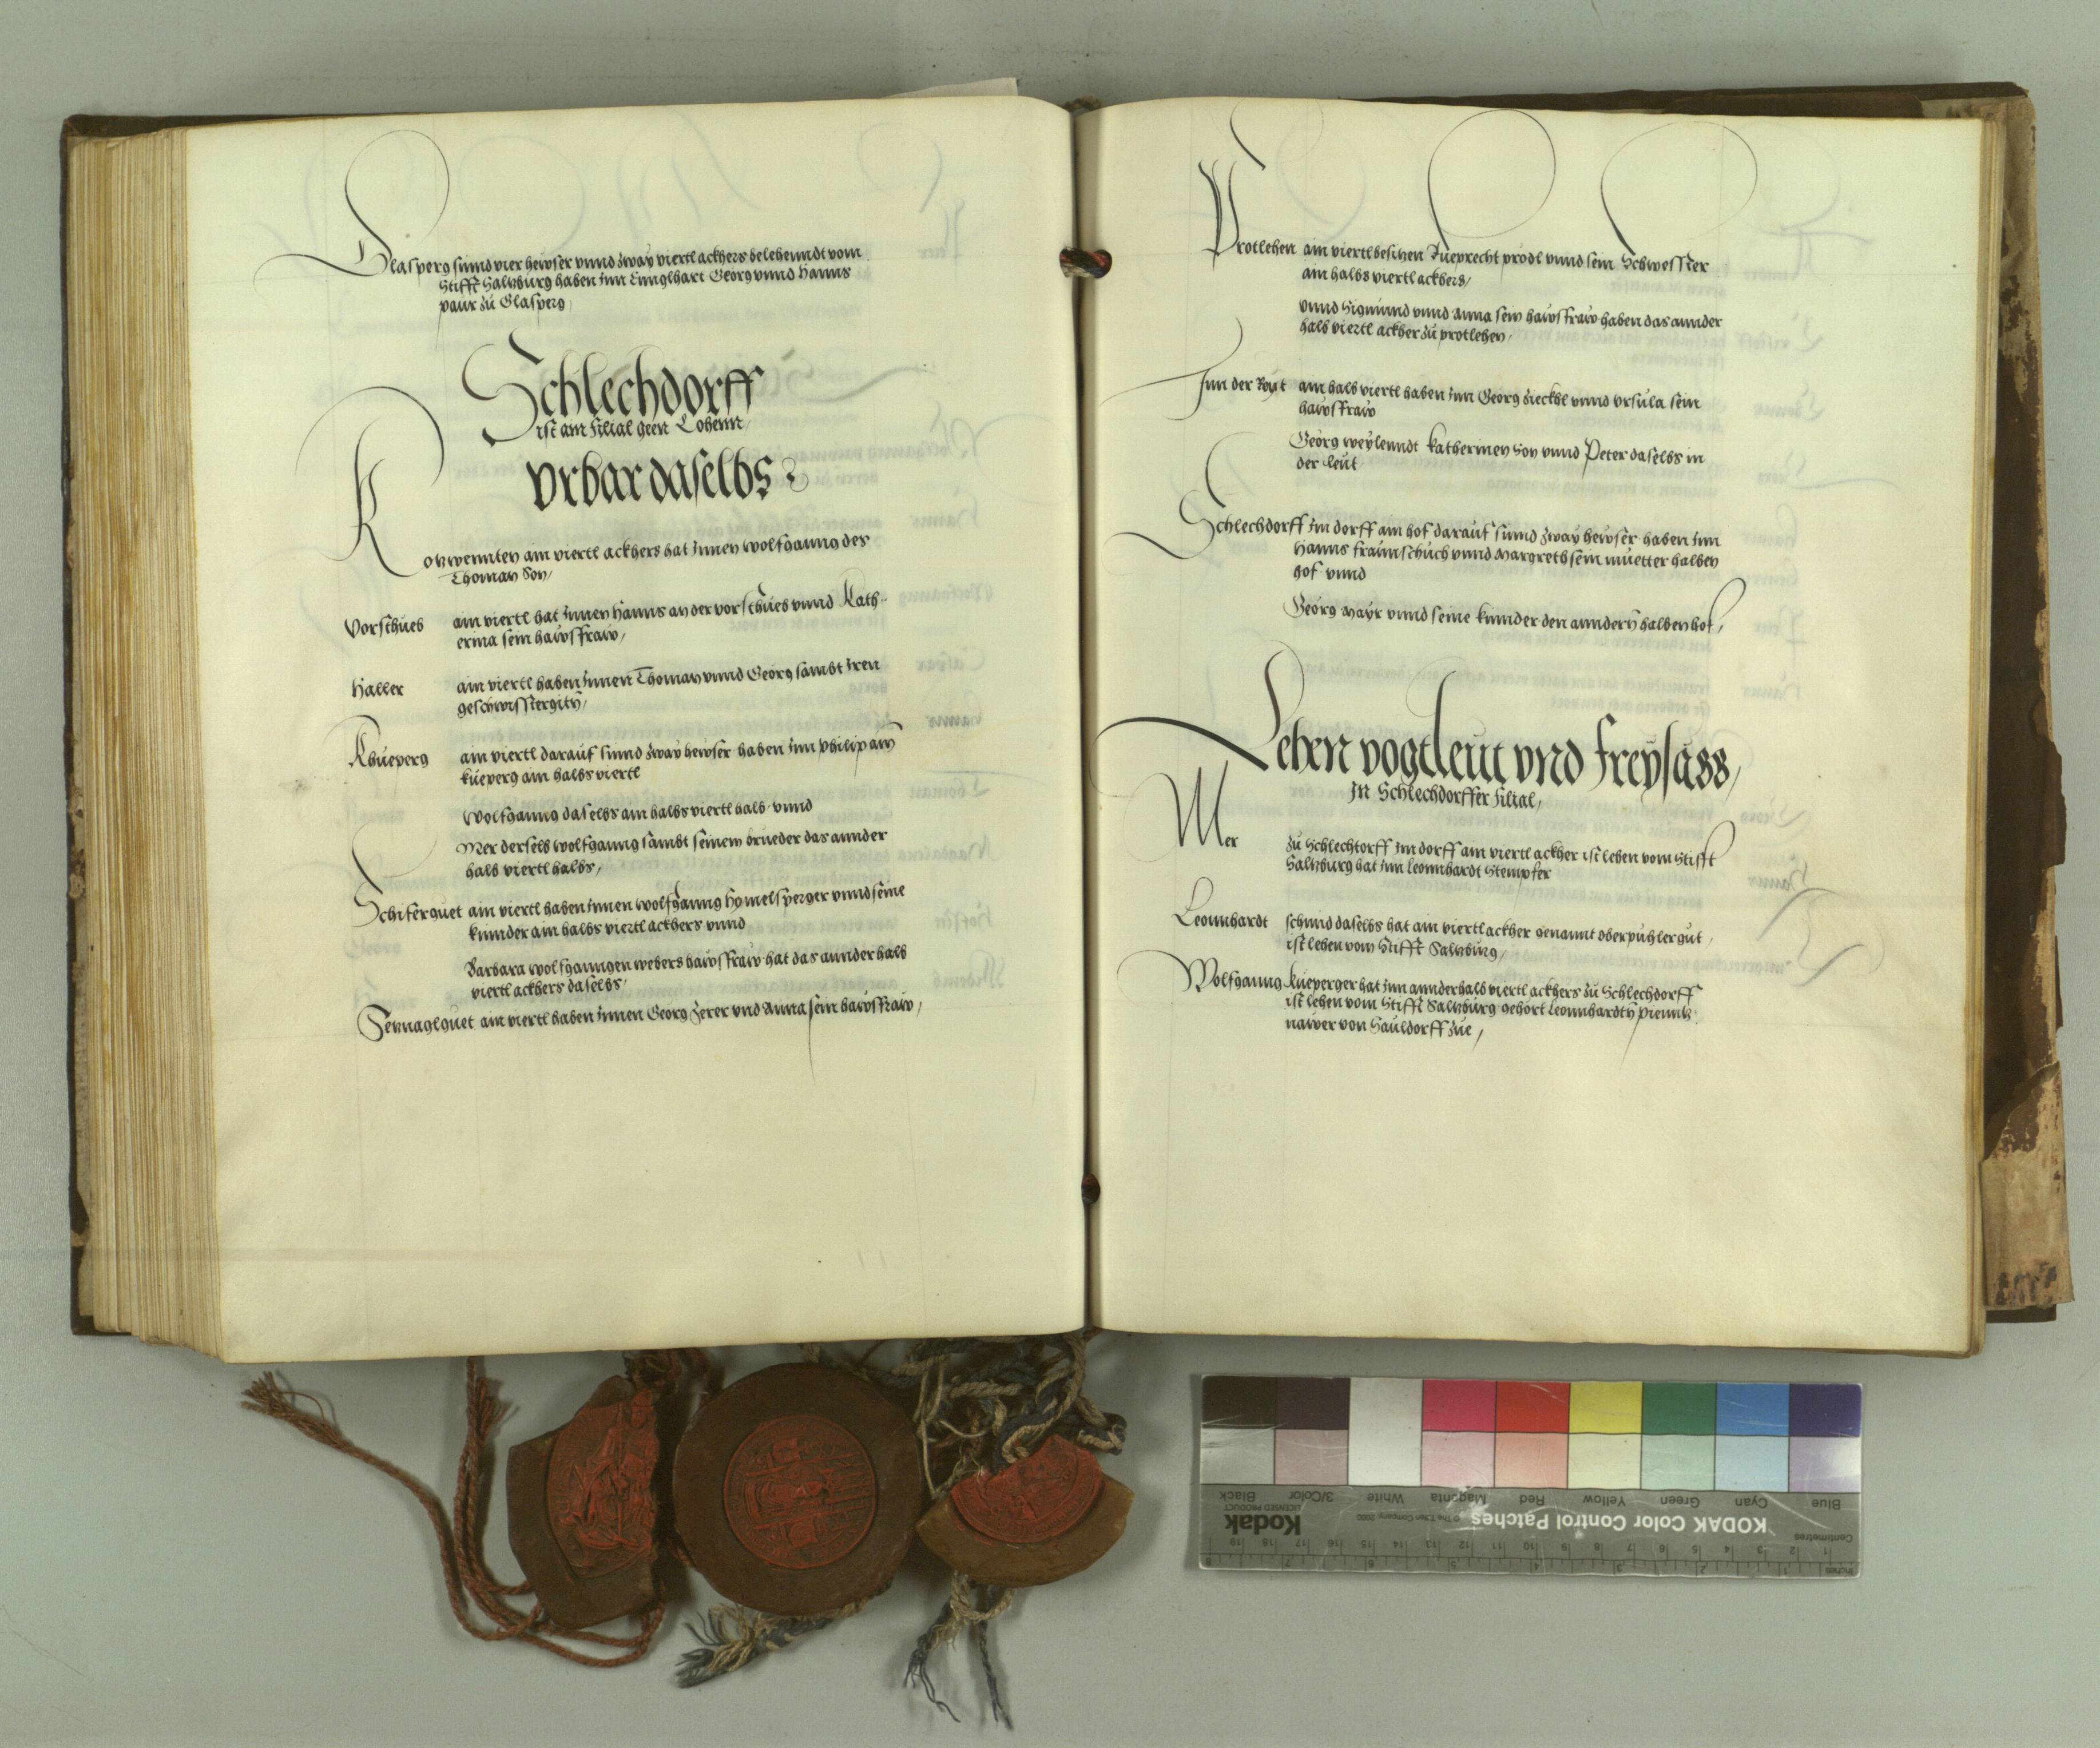 Glasperg sinnd vier hewser vnnd zway viertl ackhers belehenndt vom
Stifft Saltzburg haben Inn Linnglhart Georg vnnd Hanns
paur zu Glasperg,
Schlechdorff
ist am filial geen
Vrbar daselbs
am viertl ackhers hat Innen Wolfganng des
Thoman Son,
Vorschueb am viertl hat Innen Hanns an der vorschueb vnnd Kath-
erina sein hawsfraw,
Haller am viertl haben Innen Thoman vnnd Georg sambt Iren
geschwistergith,
Khueperg am viertl darauf sinnd zway hewser haben Inn Philip am
kueperg am halbs viertl
Wolfganng daselbs am halbs viertl halb vnnd
Mer derselb Wolfganng sambt seinem brueder das annder
halb viertl halbs,
Schiferguet am viertl haben Innen Wolfganng Hymelsperger vnnd seine
kinnder am halbs viertl ackhers vnnd
Barbara Wolfganngen webers hawsfraw hat das annder halb
viertl ackhers daselbs,
am viertl haben Innen Georg Zerer vnd Anna sein hawsfraw,
Protlehen am viertl besitzen Rueprecht prodl vnnd sein Schwesster
am halbs viertl ackhers,
vnnd Sigmund vnnd Anna sein hawsfraw haben das annder
halb viertl ackher zu protlehen,
Inn der Reyt am halb viertl haben Inn Georg zieckhl vnnd Vrsula sein
hawsfraw
Georg weylenndt Katherinen Son vnnd Peter daselbs in
der Reut
Schlechdorff Im dorff am hof darauf sinnd zway hewser haben Inn
Hanns fraunschuch vnnd Margreth sein muetter halben
hof vnnd
Georg Mayr vnnd seine kinnder den anndern halben hof,
Lehen vogtleut vnd freysäss,
In Schlechdorffer filial,
Mer zu Schlechtorff Im dorff am viertl ackher ist lehen vom Stifft
Saltzburg hat Inn Leonnhardt Stempfer
Leonnhardt schmid daselbs hat ain viertl ackher genannt oberpuhlergut,
ist lehen vom Stifft Saltzburg,
Wolfganng kueperger hat Inn annderhalb viertl ackhers zu Schlechdorff
ist lehen vom Stifft Saltzburg gehört Leonnhardth pientz-
nawer von Hauldorff zue,
KODAK Color Control Patches
Kodak
LICENSED PRODUCT
© The Tiffen Company, 2000
Blue Cyan Green Yellow Red Magenta White 3/Color Black
Centimetres
1 2 3 4 5 6 7 8 9 10 11 12 13 14 15 16 17 18 19
Inches